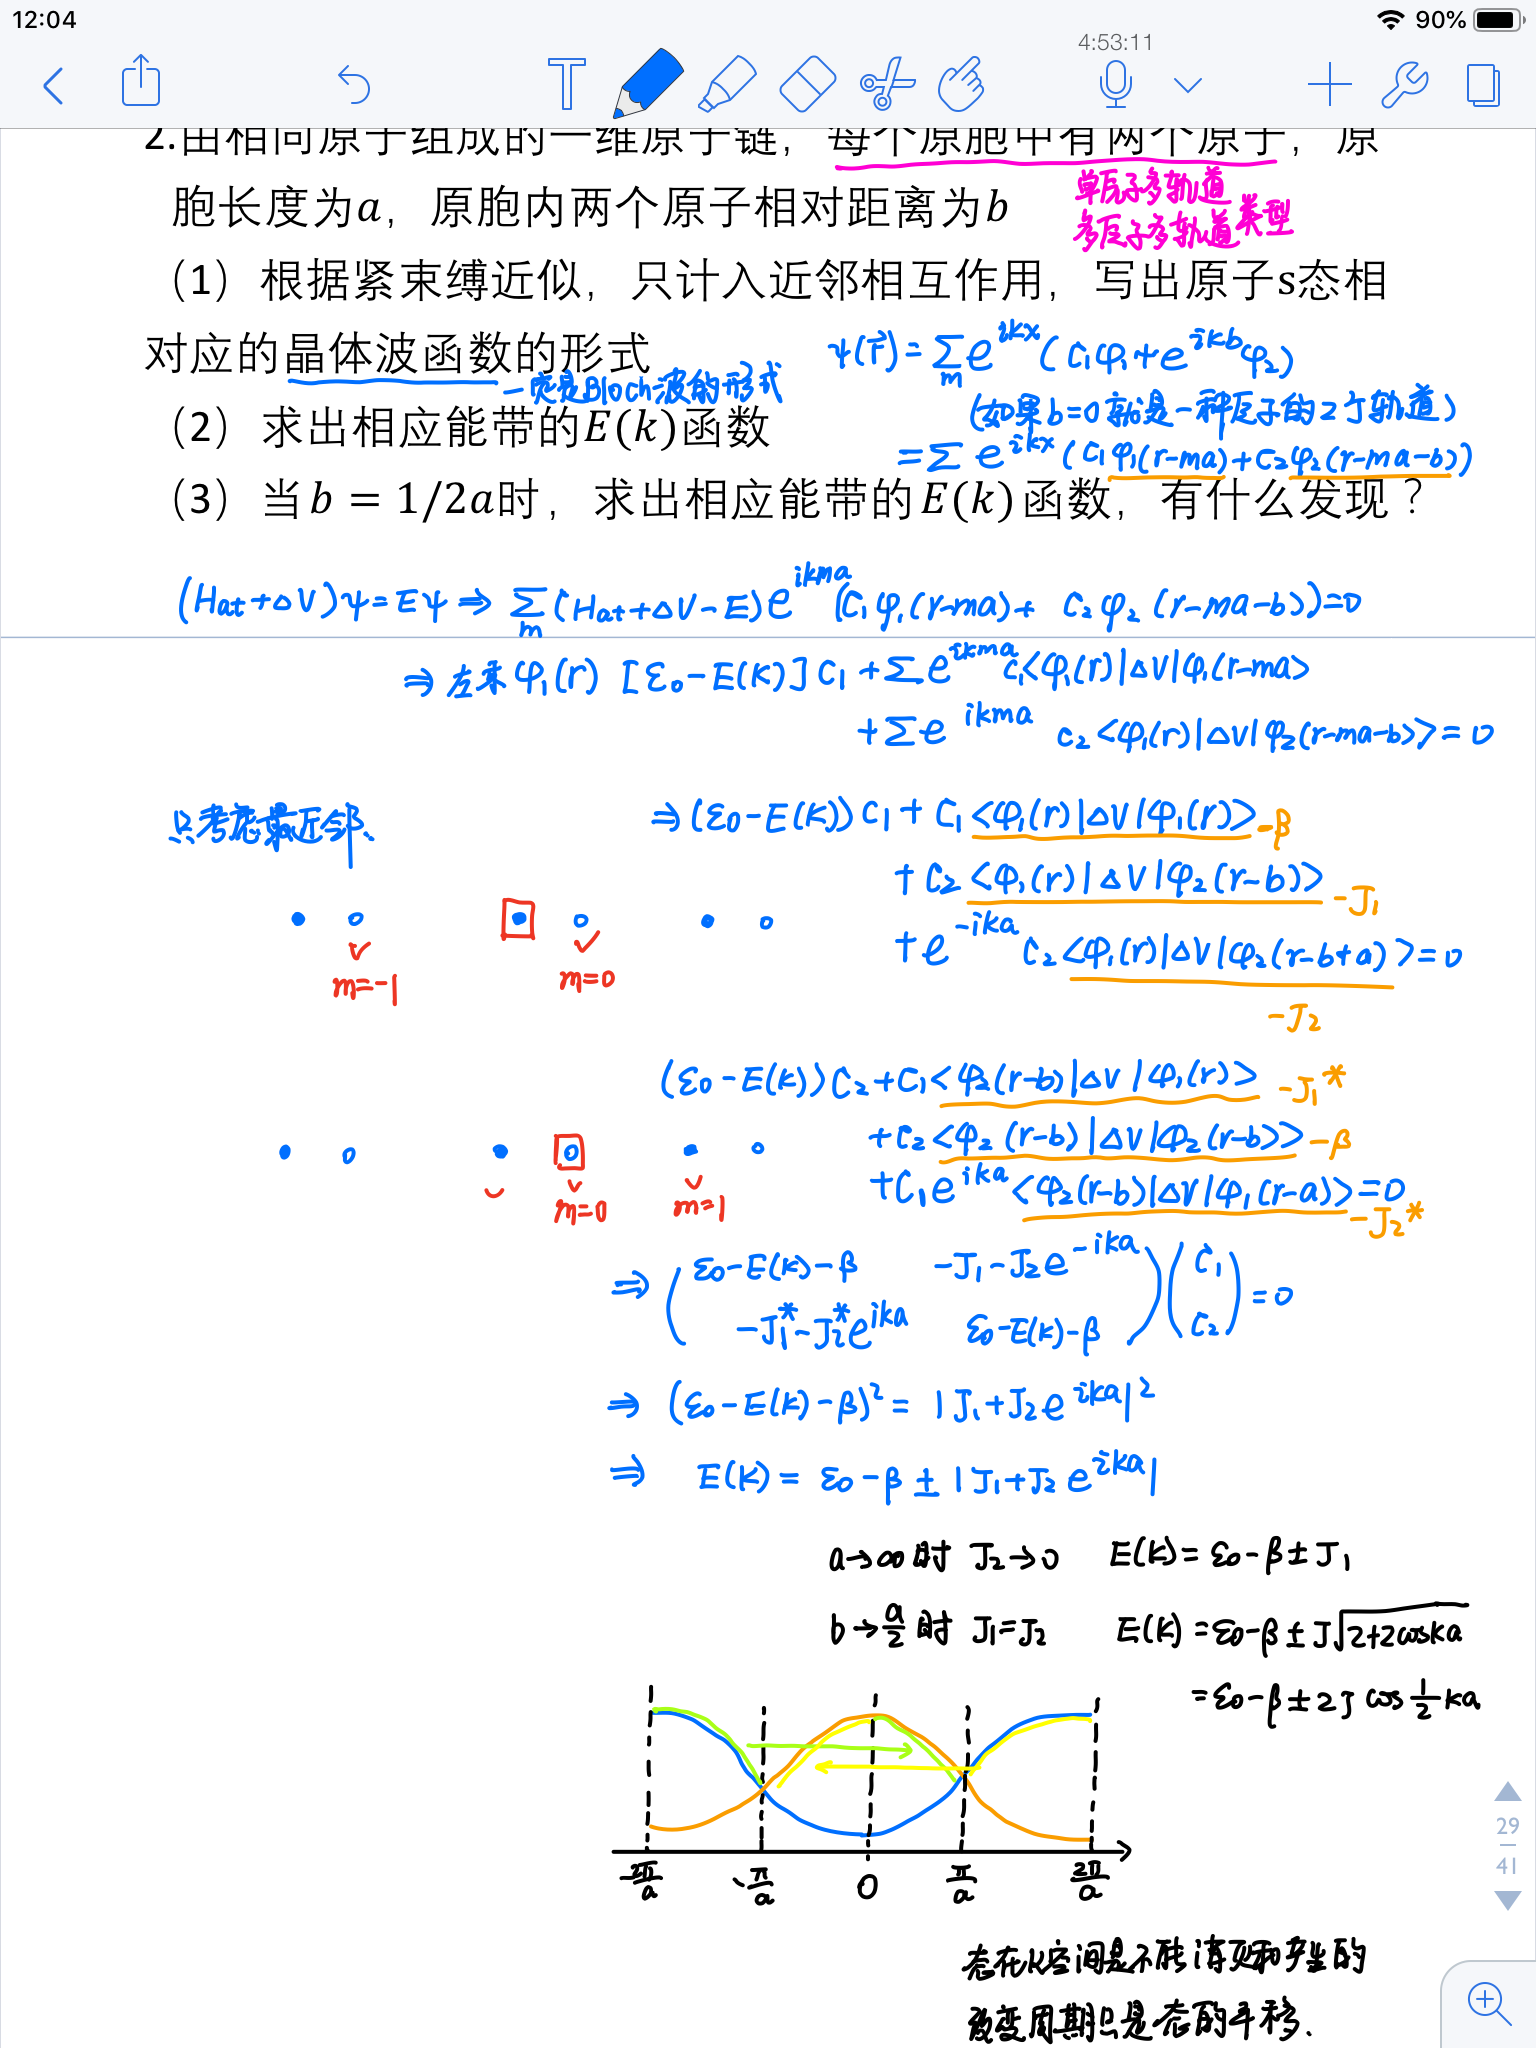 12:04
90%
4:53:11
2.由相同原子组成的一维原子链，每个原胞中有两个原子，原
胞长度为a，原胞内两个原子相对距离为b
单原子多轨道
多原子多轨道类型
（1）根据紧束缚近似，只计入近邻相互作用，写出原子s态相
对应的晶体波函数的形式
ψ(r⃗) = Σ_m e^{ikx} (C₁φ₁+e^{ikb}φ₂)
一定是Bloch波的形式
(如果b=0就是一种原子的2个轨道)
（2）求出相应能带的E(k)函数
=Σ e^{ikx} (C₁φ₁(r-ma)+C₂φ₂(r-ma-b))
（3）当b = 1/2a时，求出相应能带的E(k)函数，有什么发现？
(Hat+ΔV)ψ=Eψ ⇒ Σ_m (Hat+ΔV-E)e^{ikma} (C₁φ₁(r-ma)+ C₂φ₂(r-ma-b))=0
⇒ 左乘φ₁(r) [ε₀-E(k)]C₁+Σe^{ikma} C₁<φ₁(r)|ΔV|φ₁(r-ma>
+Σe^{ikma} C₂<φ₁(r)|ΔV|φ₂(r-ma-b)>=0
只考虑最近邻、
⇒(ε₀-E(k))C₁ + C₁<φ₁(r)|ΔV|φ₁(r)> -β
+C₂<φ₁(r)|ΔV|φ₂(r-b)> -J₁
+e^{-ika}C₂<φ₁(r)|ΔV|φ₂(r-b+a)>=0
m=-1
m=0
-J₂
(ε₀-E(k))C₂+C₁<φ₂(r-b)|ΔV|φ₁(r)> -J₁*
+C₂<φ₂(r-b)|ΔV|φ₂(r-b)> -β
+C₁e^{ika}<φ₂(r-b)|ΔV|φ₁(r-a)>=0
m=0
m=1
-J₂*
⇒ (ε₀-E(k)-β -J₁-J₂e^{-ika}) (C₁
-J₁*-J₂*e^{ika} ε₀-E(k)-β C₂) =0
⇒ (ε₀-E(k)-β)²= |J₁+J₂e^{ika}|²
⇒ E(k)= ε₀-β±|J₁+J₂e^{ika}|
a→∞时 J₂→0 E(k)=ε₀-β±J₁
b→a/2时 J₁=J₂ E(k)=ε₀-β±J√(2+2coska)
=ε₀-β±2J cos ½ka
-2π/a -π/a 0 π/a 2π/a
29
41
态在k空间是不能消灭和产生的
改变周期只是态的平移.